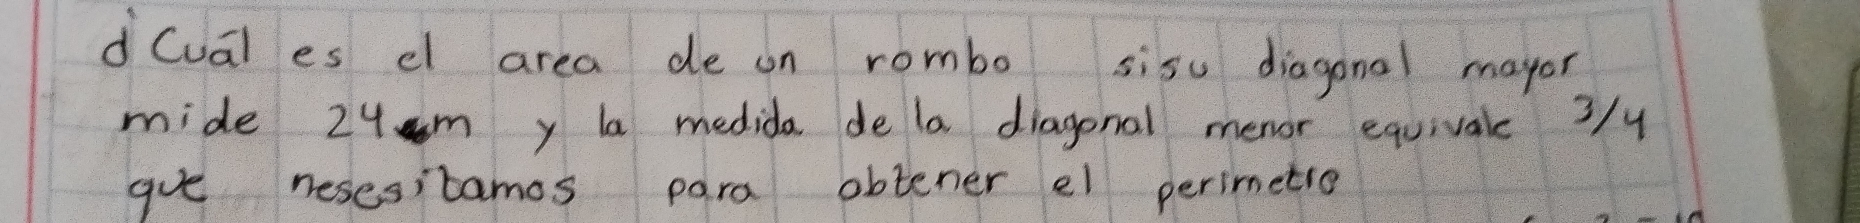 ¿Cuál es el area de un rombo si su diagonal mayor
mide 24 cm y la medida de la diagonal menor equivale 3/4
que nesesitamos para obtener el perimetro